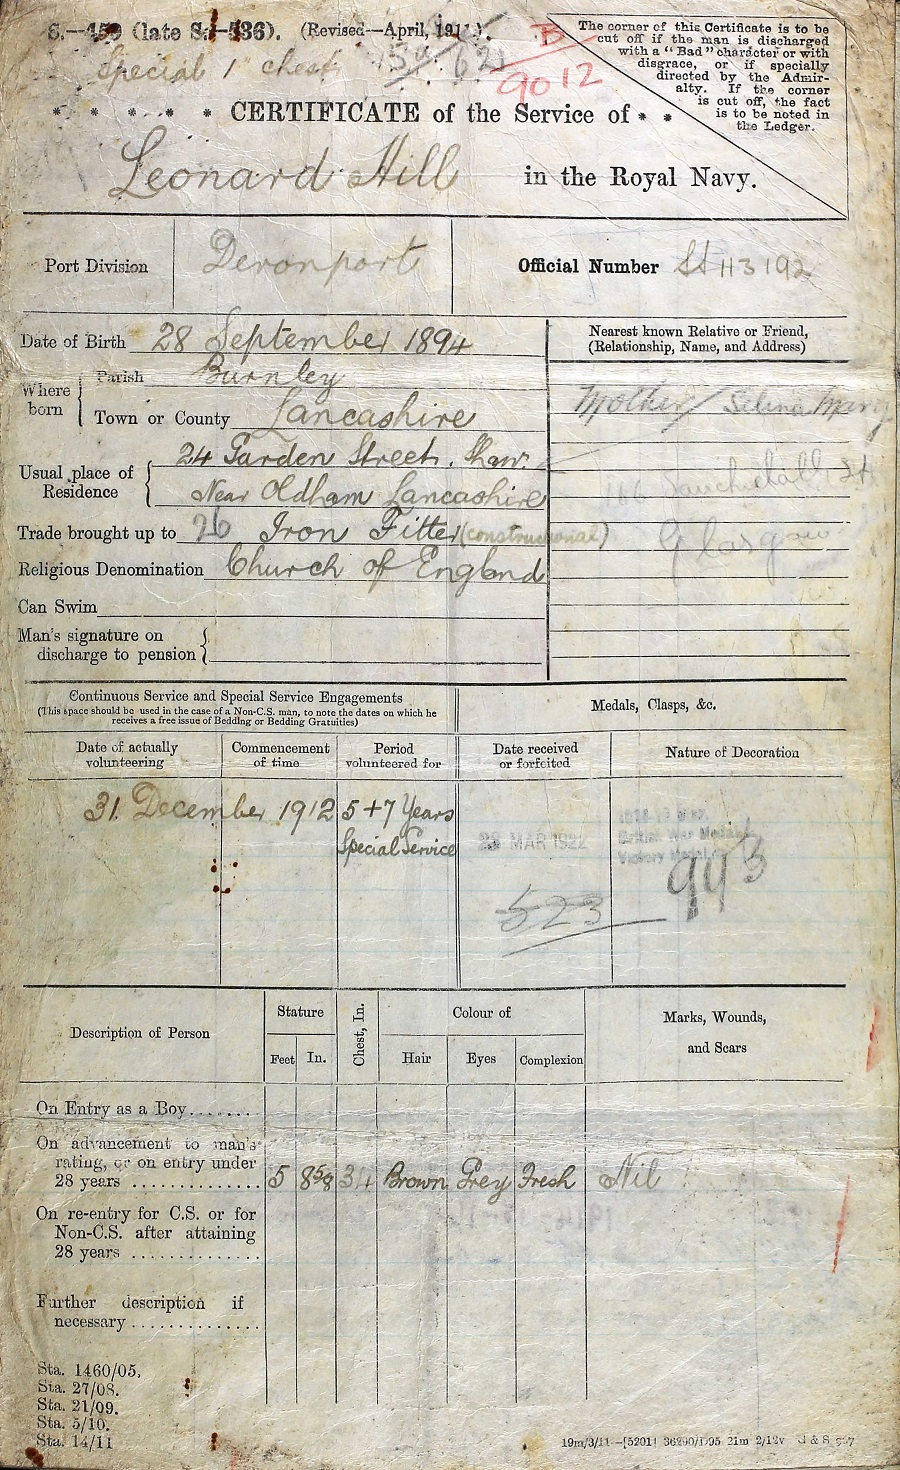 S.—459 (late S.—536). (Revised—April, 1911).
Special 1 chest
B
9012
The corner of this Certificate is to be
cut off if the man is discharged
with a "Bad" character or with
disgrace, or if specially
directed by the Admir-
alty. If the corner
is cut off, the fact
is to be noted in
the Ledger.
CERTIFICATE of the Service of
Leonard Hill in the Royal Navy.
Port Division Devonport Official Number 113192
Date of Birth 28 September 1894
Nearest known Relative or Friend,
(Relationship, Name, and Address)
Where born
Parish Burnley
Town or County Lancashire
Mother Selina Mary
Usual place of Residence
24 Garden Street. Shaw.
Near Oldham Lancashire
166 Sauchiehall St
Trade brought up to 26 Iron Fitter (constructional)
Glasgow
Religious Denomination Church of England
Can Swim
Man's signature on
discharge to pension
Continuous Service and Special Service Engagements
(This space should be used in the case of a Non-C.S. man, to note the dates on which he
receives a free issue of Bedding or Bedding Gratuities)
Medals, Clasps, &c.
Date of actually volunteering
Commencement of time
Period volunteered for
Date received or forfeited
Nature of Decoration
31 December 1912 5+7 Years
Special Service
28 MAR 1922
British War Medal
Victory Medal
993
523
Description of Person
Stature
Feet In.
Chest, In.
Colour of
Hair Eyes Complexion
Marks, Wounds,
and Scars
On Entry as a Boy........
On advancement to man's
rating, or on entry under
28 years .............. 5 8 5/8 34 Brown Grey Fresh Nil
On re-entry for C.S. or for
Non-C.S. after attaining
28 years ..............
Further description if
necessary ..............
Sta. 1460/05.
Sta. 27/08.
Sta. 21/09.
Sta. 5/10.
Sta. 14/11
19m/3/11—[5201] 36290/D95 21m 2/12v J & S